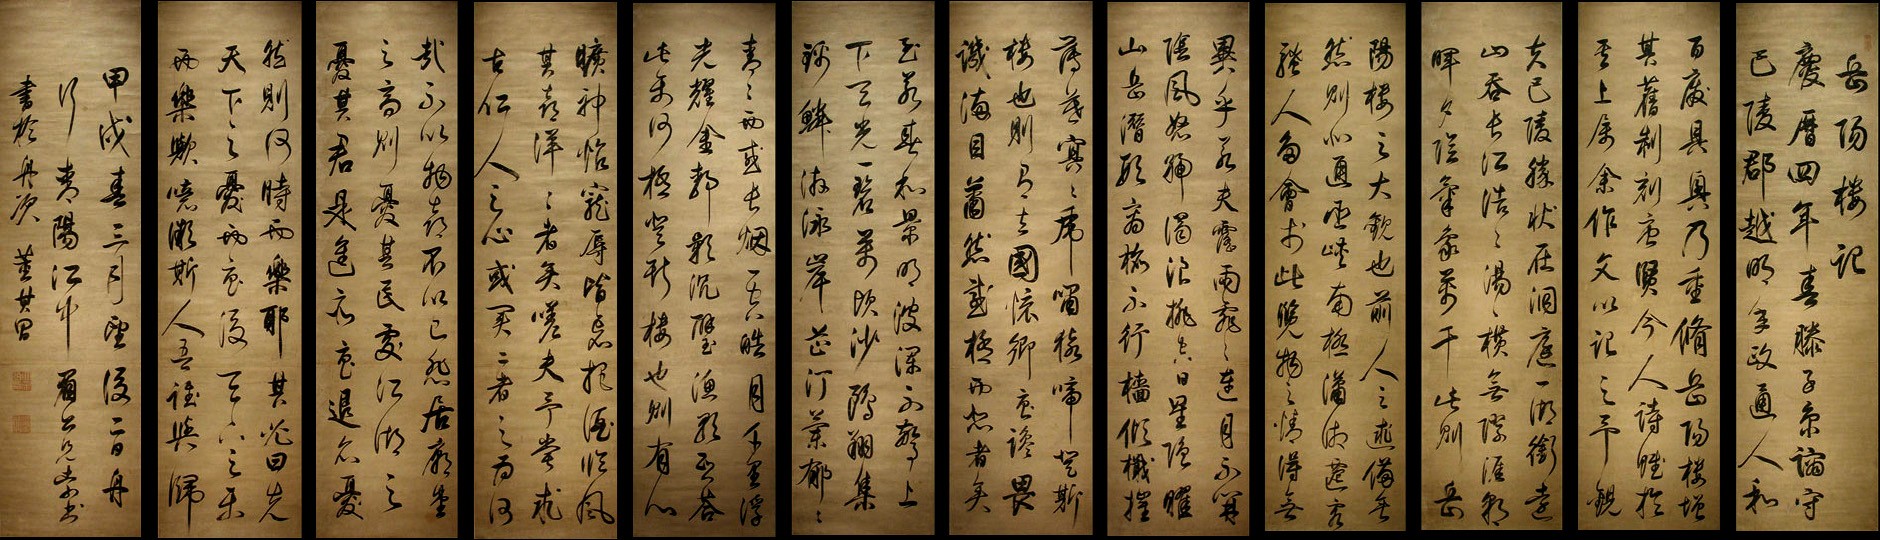 岳陽樓記
慶曆四年春滕子京謫守
巴陵郡越明年政通人和
百廢具興乃重脩岳陽樓增
其舊制刻唐賢今人詩賦於
其上屬余作文以記之予觀
夫巴陵勝狀在洞庭一湖銜遠
山吞長江浩〻湯〻橫無際涯朝
暉夕陰氣象萬千此則岳
陽樓之大觀也前人之述備矣
然則北通巫峽南極瀟湘遷客
騷人多會於此覽物之情得無
異乎若夫霪雨霏〻連月不開
陰風怒號濁浪排空日星隱曜
山岳潛形商旅不行檣傾檝摧
薄暮冥〻虎嘯猿啼登斯
樓也則有去國懷鄉憂讒畏
譏滿目蕭然感極而悲者矣
至若春和景明波瀾不驚上
下天光一碧萬頃沙鷗翔集
錦鱗游泳岸芷汀蘭郁〻
青〻而或長烟一空皓月千里浮
光耀金靜影沉璧漁歌互答
此樂何極登斯樓也則有心
曠神怡寵辱皆忘把酒臨風
其喜洋〻者矣嗟夫予嘗求
古仁人之心或異二者之為何
哉不以物喜不以己悲居廟堂
之高則憂其民處江湖之
憂其君是進亦憂退亦憂
然則何時而樂耶其必曰先
天下之憂而憂後天下之樂
而樂歟噫微斯人吾誰與歸
甲戌春三月望後二日舟
行陽江中眉公兄索書
書於舟次 董其昌